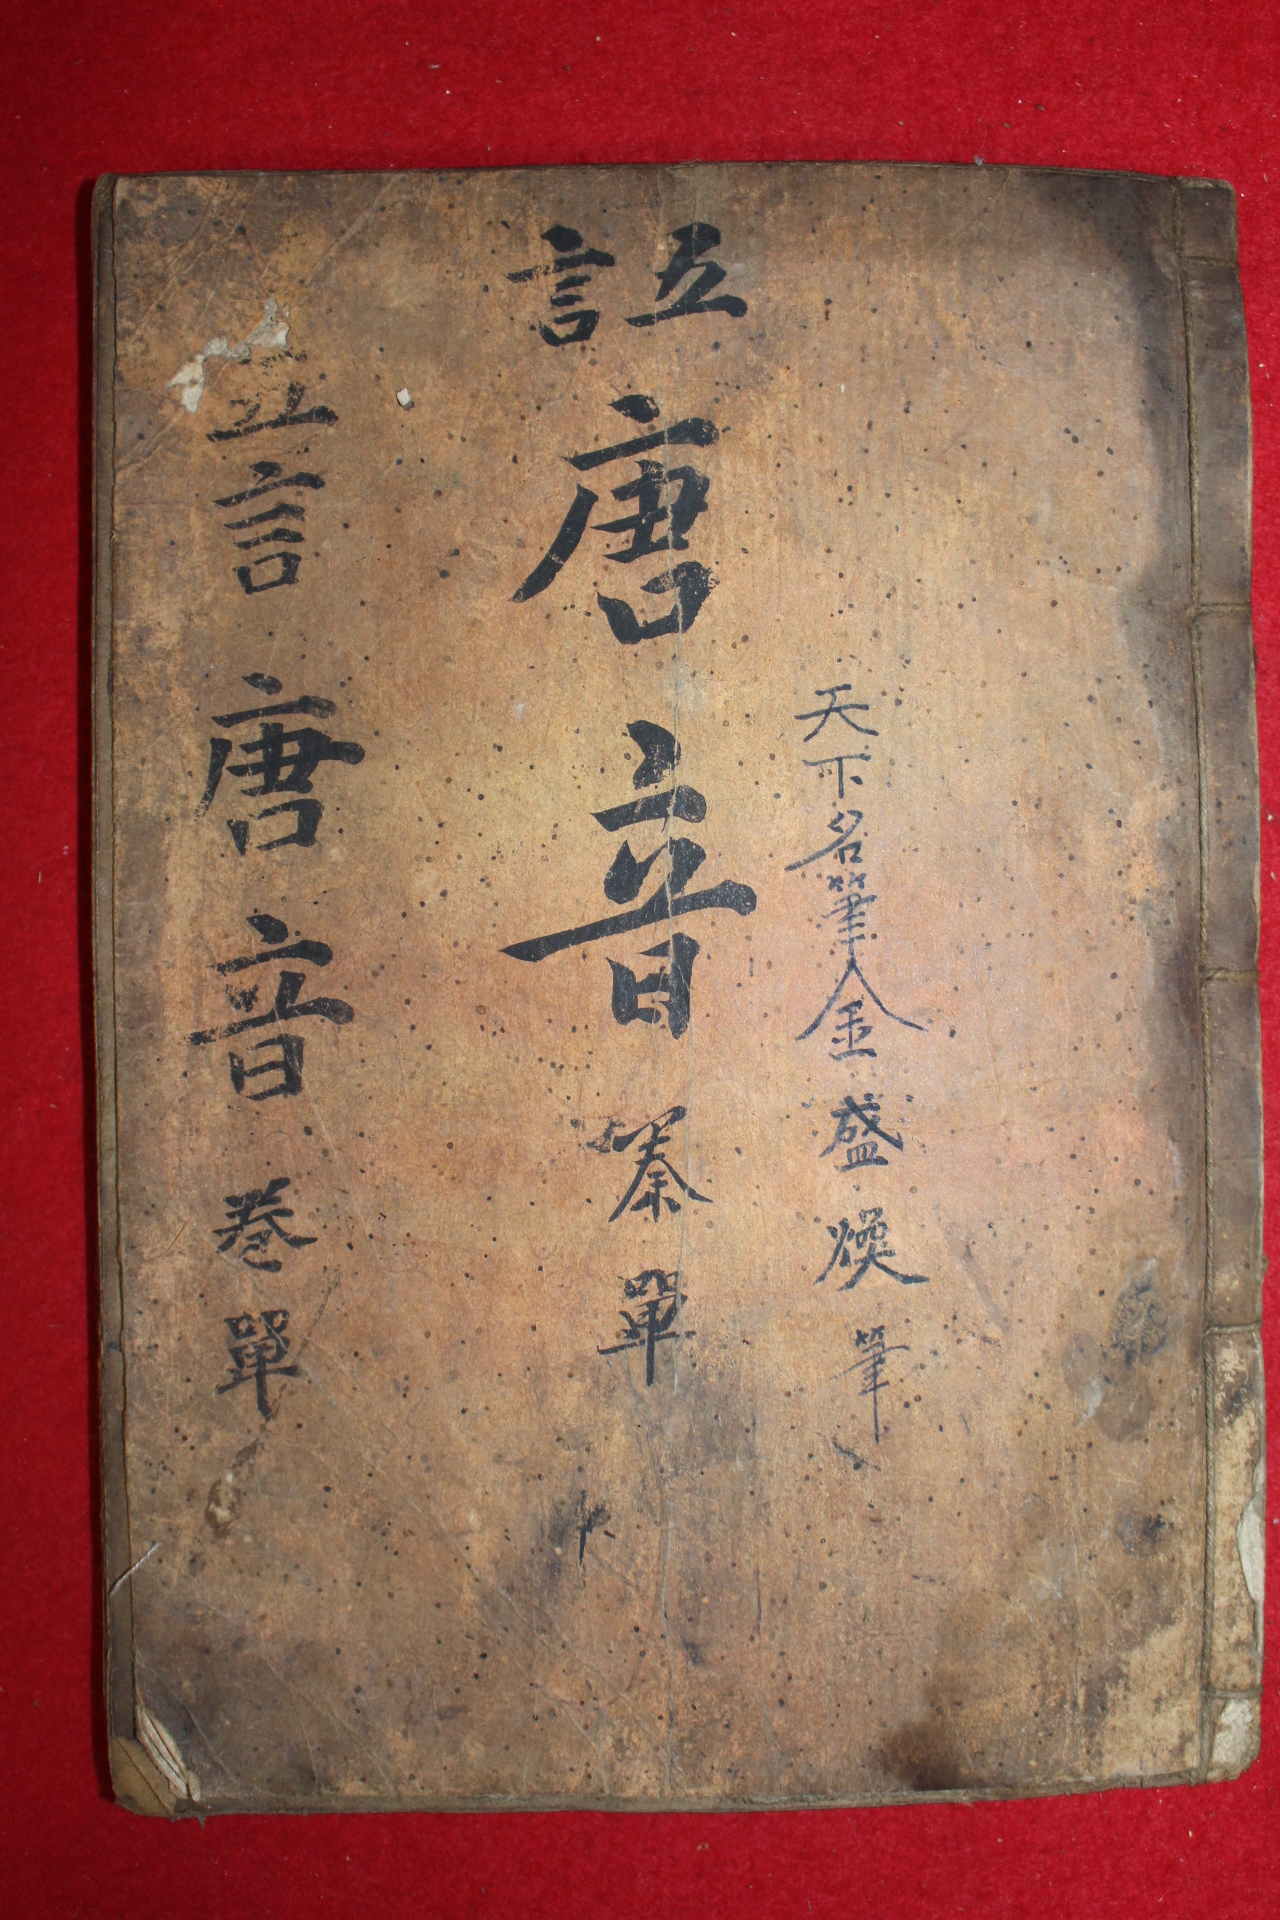 天下名筆金盛煥筆
五言
唐音
秦單
五言唐音卷單